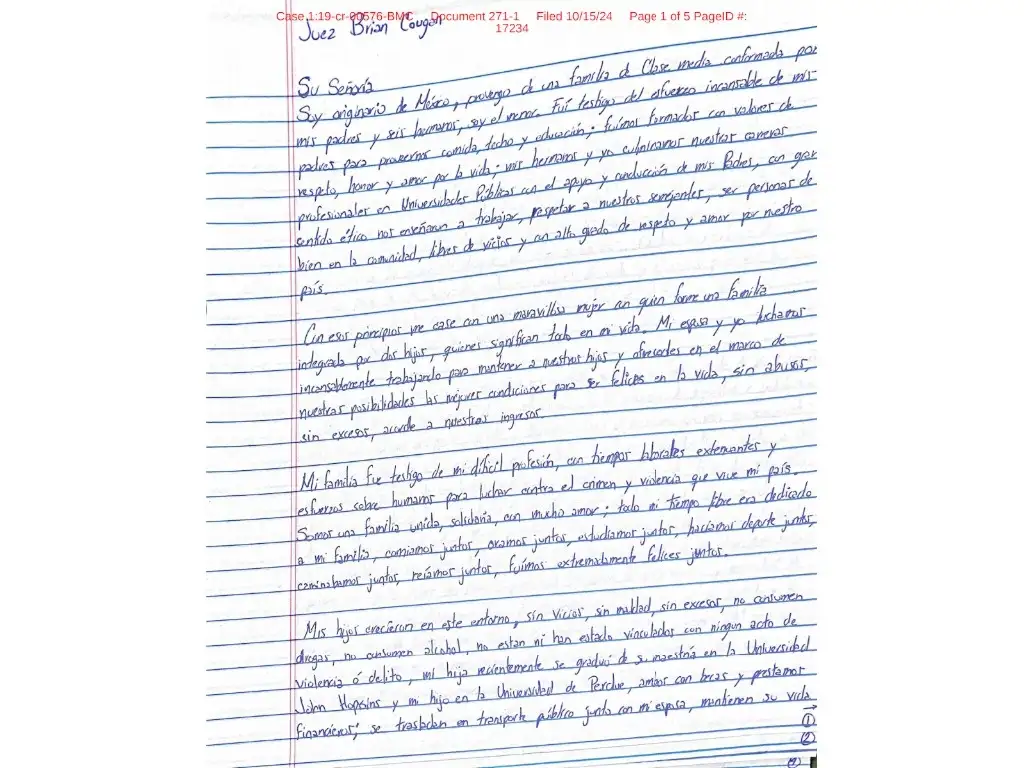 Case 1:19-cr-00576-BMC Document 271-1 Filed 10/15/24 Page 1 of 5 PageID #:
17234
Juez Brian Cougan
Su Señoría
Soy originario de México, provengo de una familia de Clase media conformada por
mis padres y seis hermanos, soy el menor. Fuí testigo del esfuerzo incansable de mis
padres para proveernos comida, techo y educación; fuímos formados con valores de
respeto, honor y amor por la vida; mis hermanos y yo culminamos nuestras carreras
profesionales en Universidades Públicas con el apoyo y conducción de mis Padres, con gran
sentido ético nos enseñaron a trabajar, respetar a nuestros semejantes, ser personas de
bien en la comunidad, libres de vicios y con alto grado de respeto y amor por nuestro
país.
Con esos principios me case con una maravillosa mujer con quien forme una familia
integrada por dos hijos, quienes significan todo en mi vida. Mi esposa y yo luchamos
incansablemente trabajando para mantener a nuestros hijos y ofrecerles en el marco de
nuestras posibilidades las mejores condiciones para ser felices en la vida, sin abusos,
sin excesos, acorde a nuestros ingresos.
Mi familia fue testigo de mi difícil profesión, con tiempos laborales extenuantes y
esfuerzos sobre humanos para luchar contra el crimen y violencia que vive mi país.
Somos una familia unida, solidaria, con mucho amor; todo mi tiempo libre era dedicado
a mi familia, comiamos juntos, oramos juntos, estudiamos juntos, haciamos deporte juntos,
caminabamos juntos, reíamos juntos, fuímos extremadamente felices juntos.
Mis hijos crecieron en este entorno, sin vicios, sin maldad, sin excesos, no consumen
drogas, no consumen alcohol, no estan ni han estado vinculados con ningun acto de
violencia ó delito, mi hija recientemente se graduó de su maestría en la Universidad
John Hopkins y mi hijo en la Universidad de Perdue, ambos con becas y prestamos
financieros; se trasladan en transporte público junto con mi esposa, mantienen su vida
→
1
2